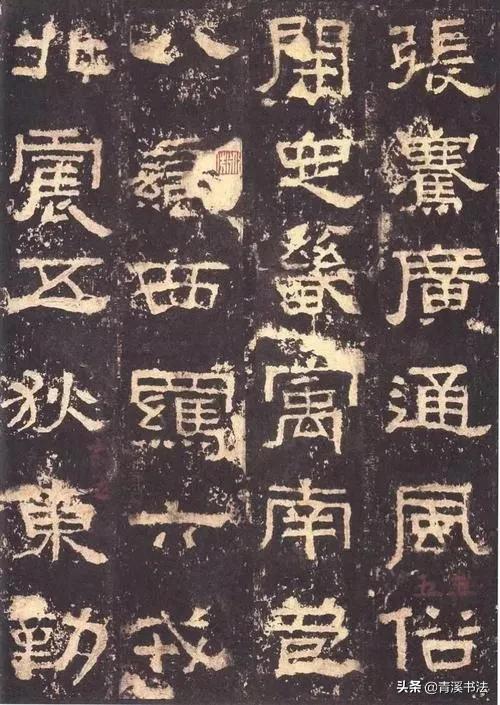 張騫廣通風俗
開定畿寓南苞
八蠻西羈六戎
北震五狄東勤
头条 @青溪书法